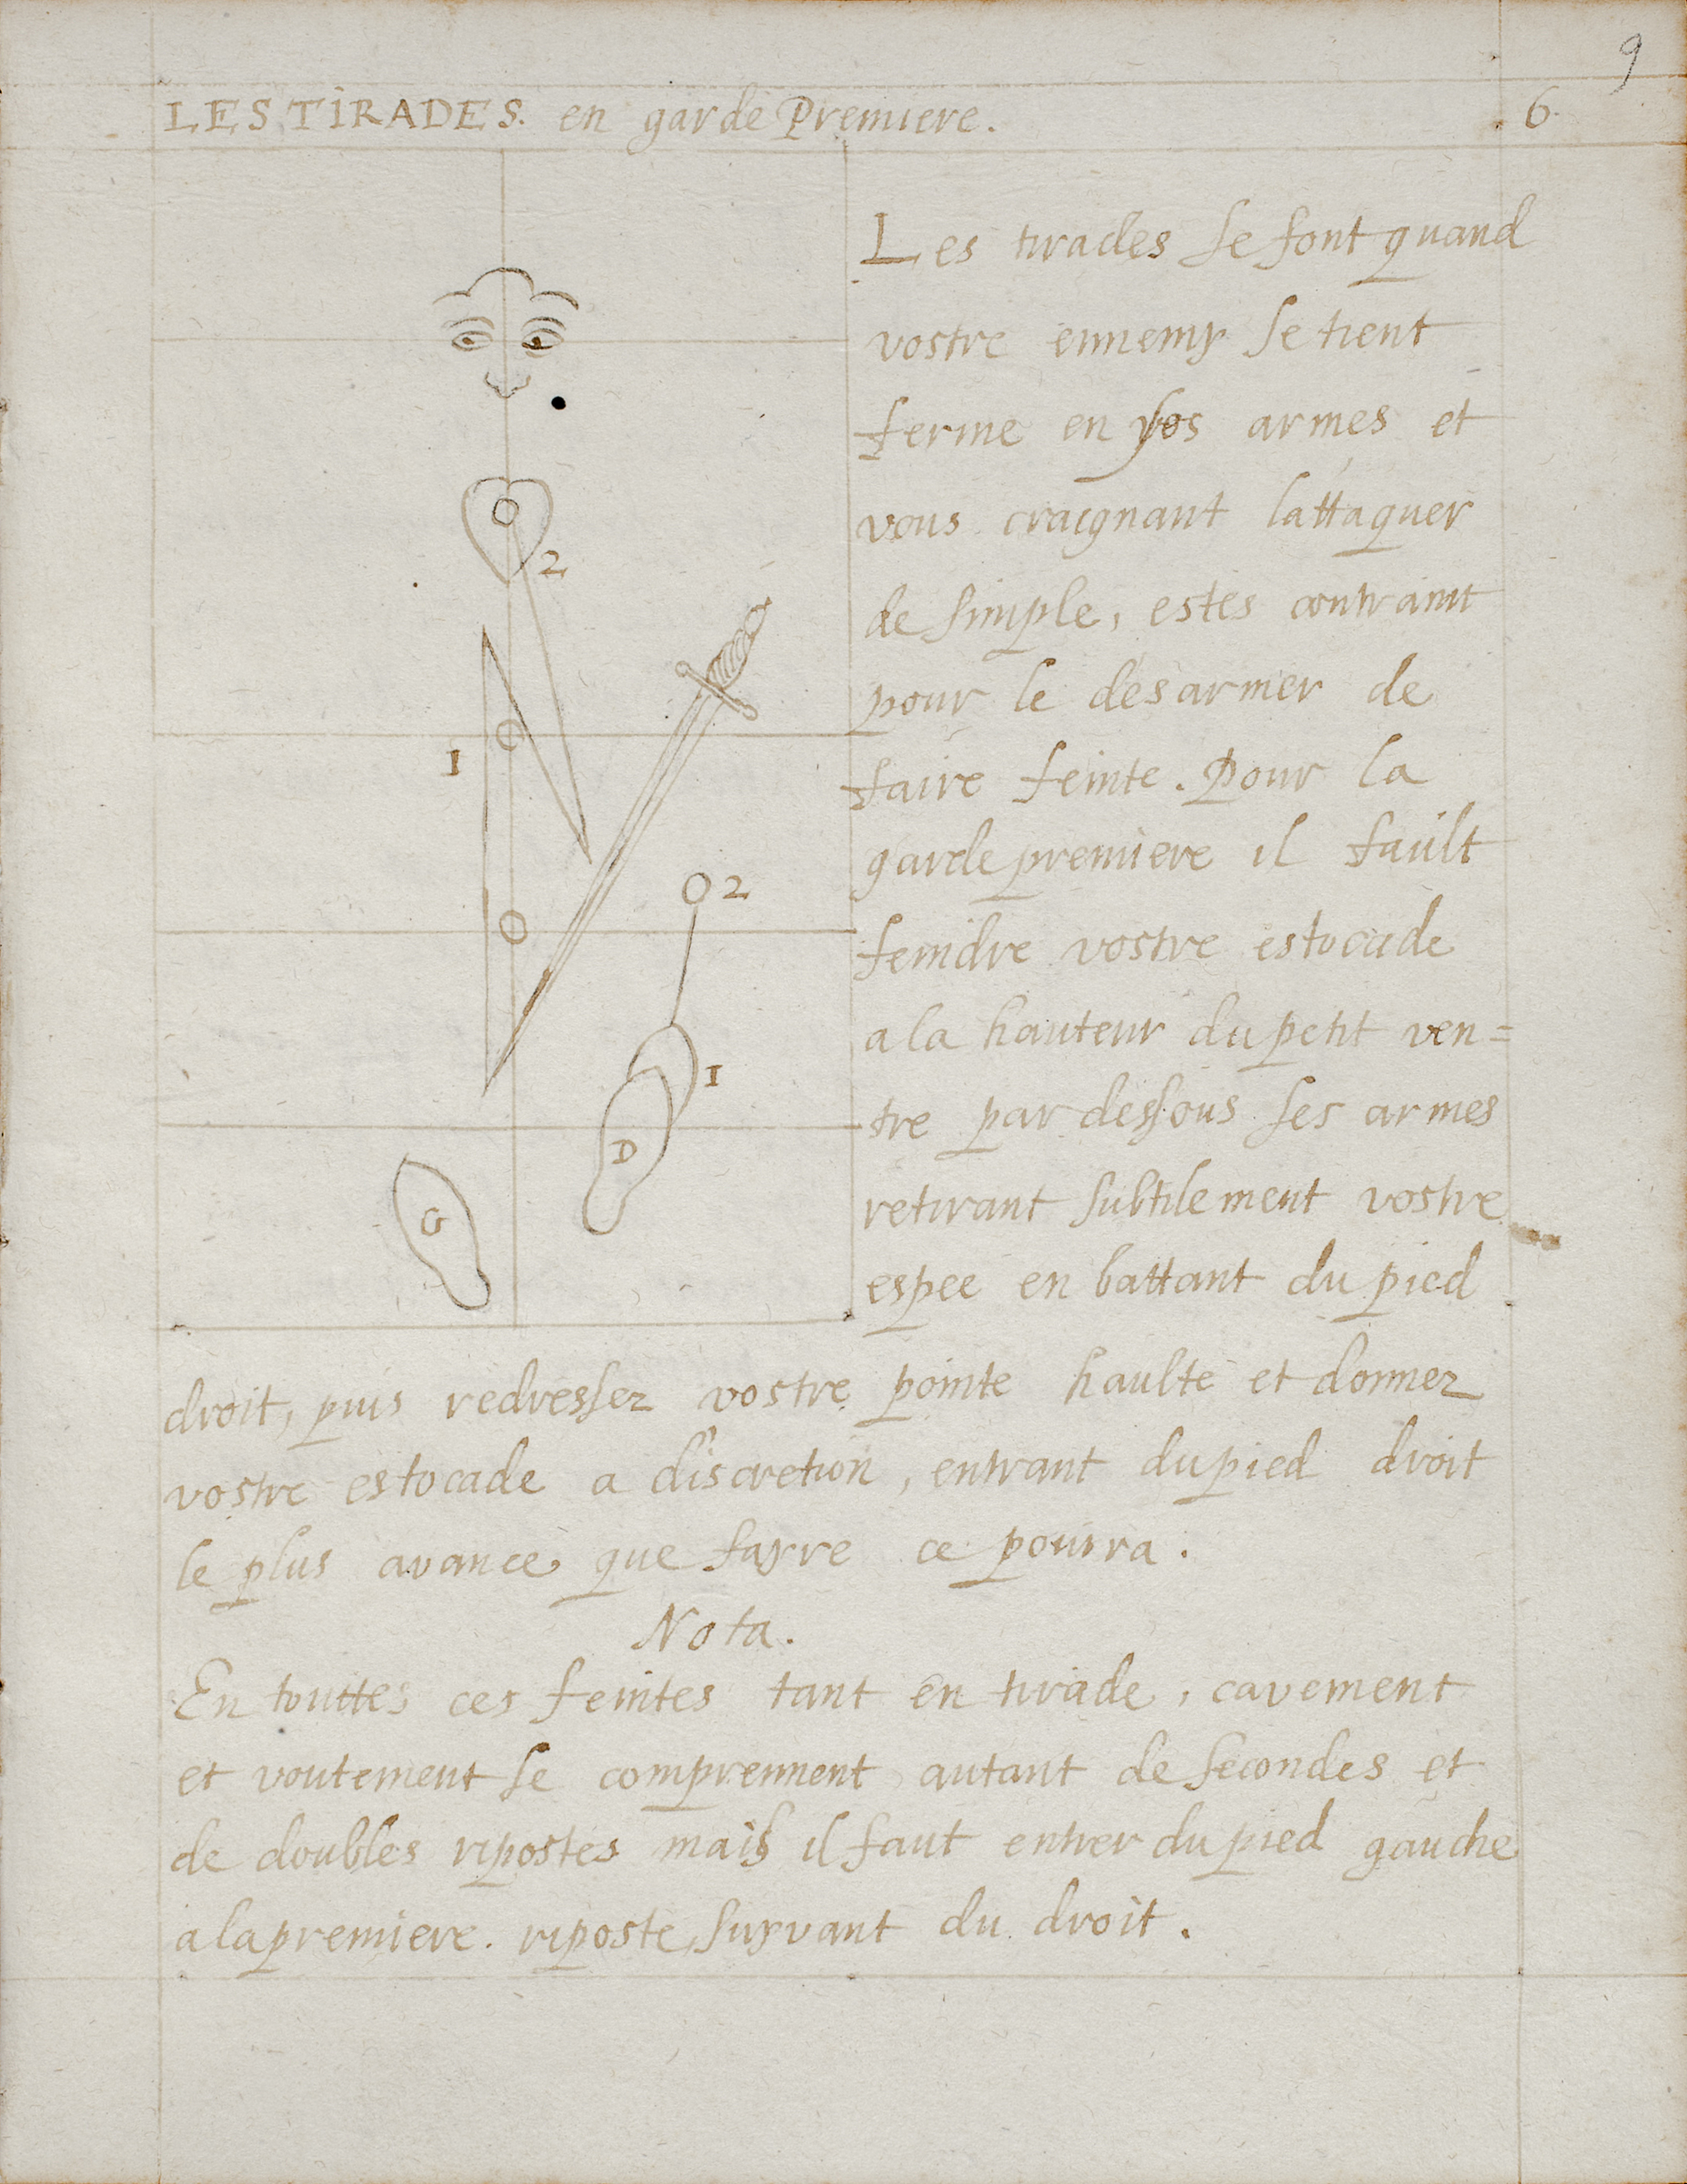 9
LES TIRADES. en garde Premiere. 6.
Les tirades se font quand
vostre ennemy se tient
ferme en ses armes et
vous craignant lattaquer
de simple, estes contraint
pour le desarmer de
faire feinte. Pour la
garde premiere il fault
feindre vostre estocade
a la hauteur du petit ven=
tre par dessous ses armes
retirant subtilement vostre
espee en battant du pied
droit, puis redresser vostre pointe haulte et donner
vostre estocade a discretion, entrant du pied droit
le plus avance que fayre ce pourra.
Nota.
En touttes ces feintes tant en tirade, cavement
et voutement se comprennent autant de secondes et
de doubles ripostes mais il faut entrer du pied gauche
a la premiere. riposte suyvant du droit.
2
1
2
1
D
G